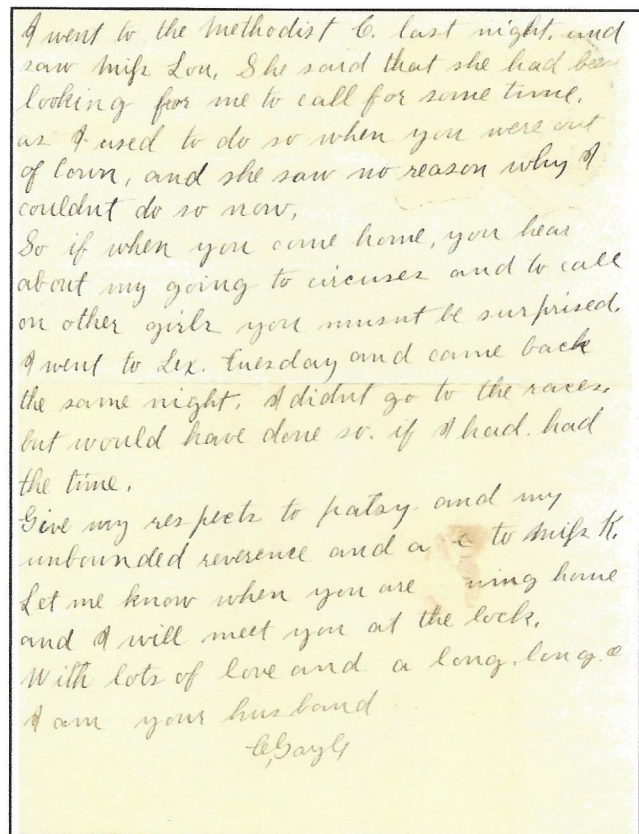 I went to the Methodist C. last night, and
saw Miss Lou, She said that she had been
looking for me to call for some time,
as I used to do so when you were out
of town, and she saw no reason why I
couldnt do so now,
So if when you come home, you hear
about my going to circuses and to call
on other girls you musnt be surprised.
I went to Lex. Tuesday and came back
the same night. I didnt go to the races,
but would have done so. if I had had
the time.
Give my respects to patsy and my
unbounded reverence and a to Miss K.
Let me know when you are ming home
and I will meet you at the lock.
With lots of love and a long, long
I am your husband